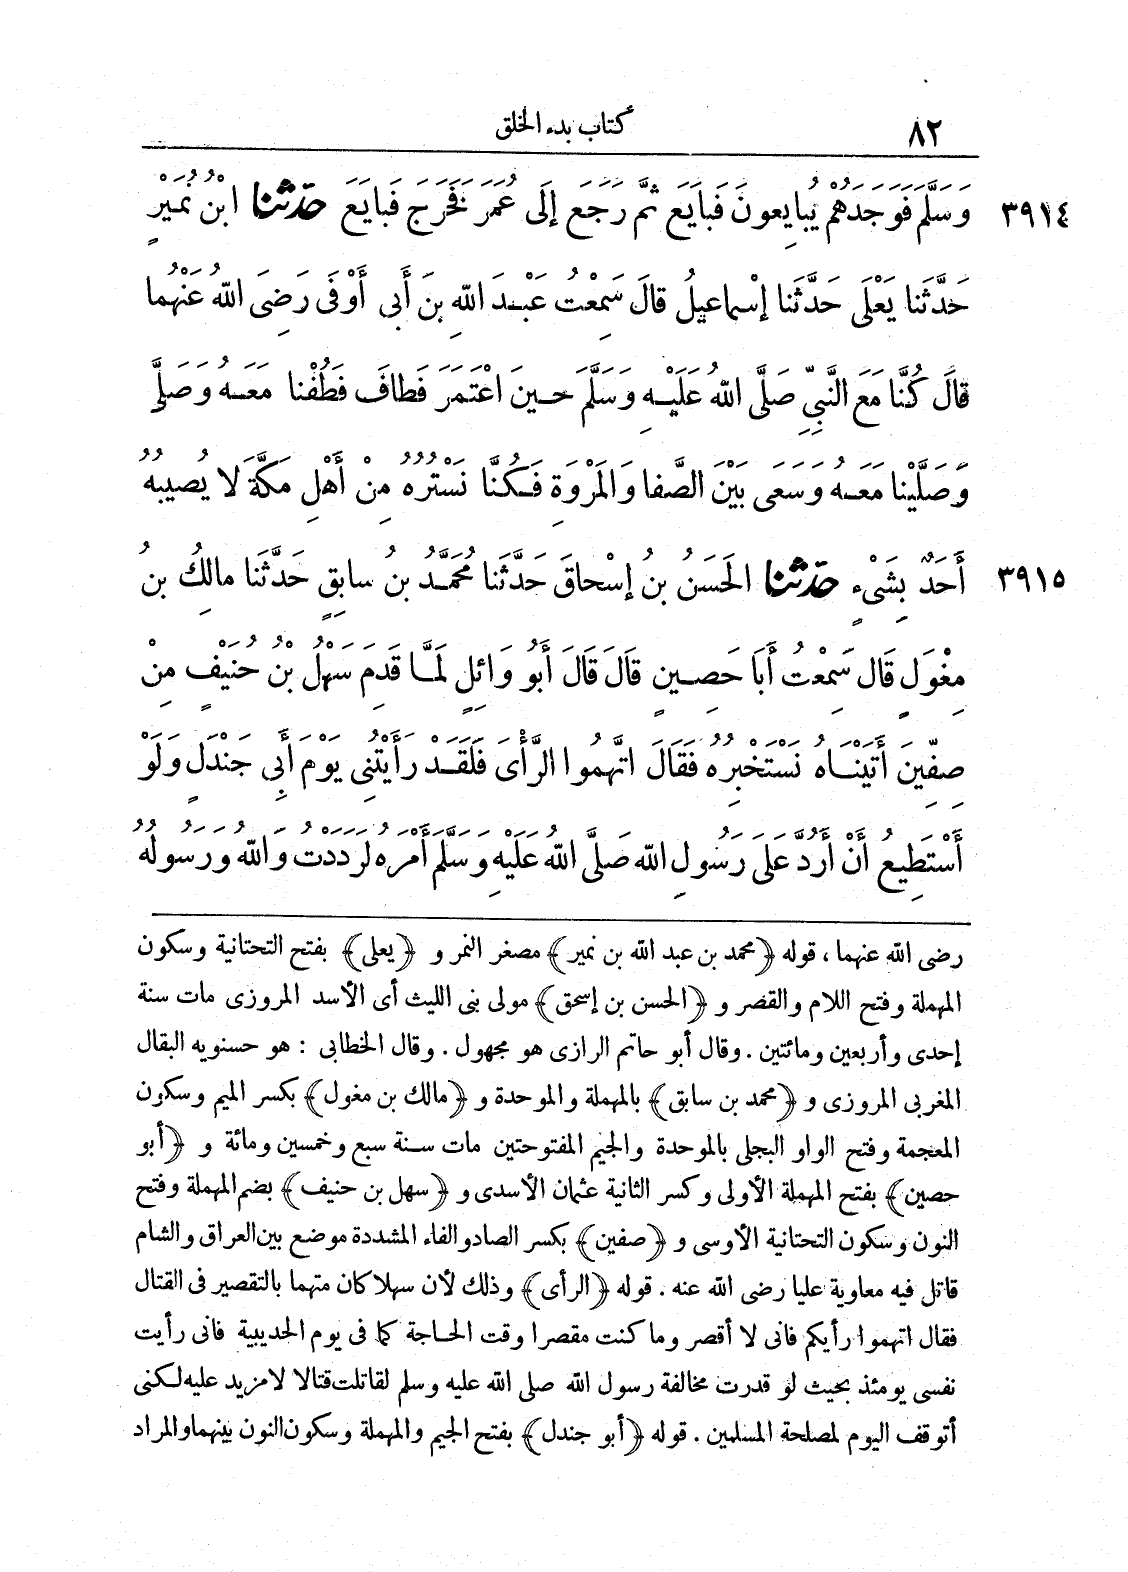 ٨٢
كتاب بدء الخلق
وَسَلَّمَ فَوَجَدَهُمْ يُبايِعونَ فَبايَعَ ثُمَّ رَجَعَ إلَى عُمَرَ فَخَرَجَ فَبايَعَ حدثنا ابْنُ نُمَيْرٍ ٣٩١٤
حَدَّثَنا يَعْلَى حَدَّثَنا إسْماعيلُ قالَ سَمِعْتُ عَبْدَ اللهِ بنَ أبى أَوْفَى رَضِىَ اللهُ عَنْهُما
قالَ كُنَّا مَعَ النَّبِىِّ صَلَّى اللهُ عَلَيْهِ وَسَلَّمَ حينَ اعْتَمَرَ فَطافَ فَطُفْنا مَعَهُ وَصَلَّى
وَصَلَّيْنا مَعَهُ وَسَعَى بَيْنَ الصَّفا وَالمَرْوَةِ فَكُنَّا نَسْتُرُهُ مِنْ أَهْلِ مَكَّةَ لا يُصيبُهُ
أَحَدٌ بِشَىْءٍ حدثنا الحَسَنُ بنُ إسْحاقَ حَدَّثَنا مُحَمَّدُ بنُ سابِقٍ حَدَّثَنا مالكُ بنُ ٣٩١٥
مِغْوَلٍ قالَ سَمِعْتُ أَبَا حَصِينٍ قَالَ قَالَ أَبُو وَائِلٍ لَمَّا قَدِمَ سَهْلُ بْنُ حُنَيْفٍ مِنْ
صِفِّينَ أَتَيْنَاهُ نَسْتَخْبِرُهُ فَقَالَ اتَّهِمُوا الرَّأْىَ فَلَقَدْ رَأَيْتُنِى يَوْمَ أَبِى جَنْدَلٍ وَلَوْ
أَسْتَطِيعُ أَنْ أَرُدَّ عَلَى رَسُولِ اللهِ صَلَّى اللهُ عَلَيْهِ وَسَلَّمَ أَمْرَهُ لَرَدَدْتُ وَاللهُ وَرَسُولُهُ
رضى الله عنهما ، قوله ﴿محمد بن عبد الله بن نمير﴾ مصغر النمر و ﴿يعلى﴾ بفتح التحتانية وسكون
المهملة وفتح اللام والقصر و ﴿الحسن بن إسحق﴾ مولى بنى الليث أى الأسد المروزى مات سنة
إحدى وأربعين ومائتين . وقال أبو حاتم الرازى هو مجهول . وقال الخطابى : هو حسنويه البقال
المغربى المروزى و ﴿محمد بن سابق﴾ بالمهملة والموحدة و ﴿مالك بن مغول﴾ بكسر الميم وسكون
المعجمة وفتح الواو البجلى بالموحدة والجيم المفتوحتين مات سنة سبع وخمسين ومائة و ﴿أبو
حصين﴾ بفتح المهملة الأولى وكسر الثانية عثمان الأسدى و ﴿سهل بن حنيف﴾ بضم المهملة وفتح
النون وسكون التحتانية الأوسى و ﴿صفين﴾ بكسر الصاد والفاء المشددة موضع بين العراق والشام
قاتل فيه معاوية عليا رضى الله عنه . قوله ﴿الرأى﴾ وذلك لأن سهلا كان متهما بالتقصير فى القتال
فقال اتهموا رأيكم فانى لا أقصر وما كنت مقصرا وقت الحاجة كما فى يوم الحديبية فانى رأيت
نفسى يومئذ بحيث لو قدرت مخالفة رسول الله صلى الله عليه وسلم لقاتلت قتالا لا مزيد عليه لكنى
أتوقف اليوم لمصلحة المسلمين . قوله ﴿أبو جندل﴾ بفتح الجيم والمهملة وسكون النون بينهما والمراد